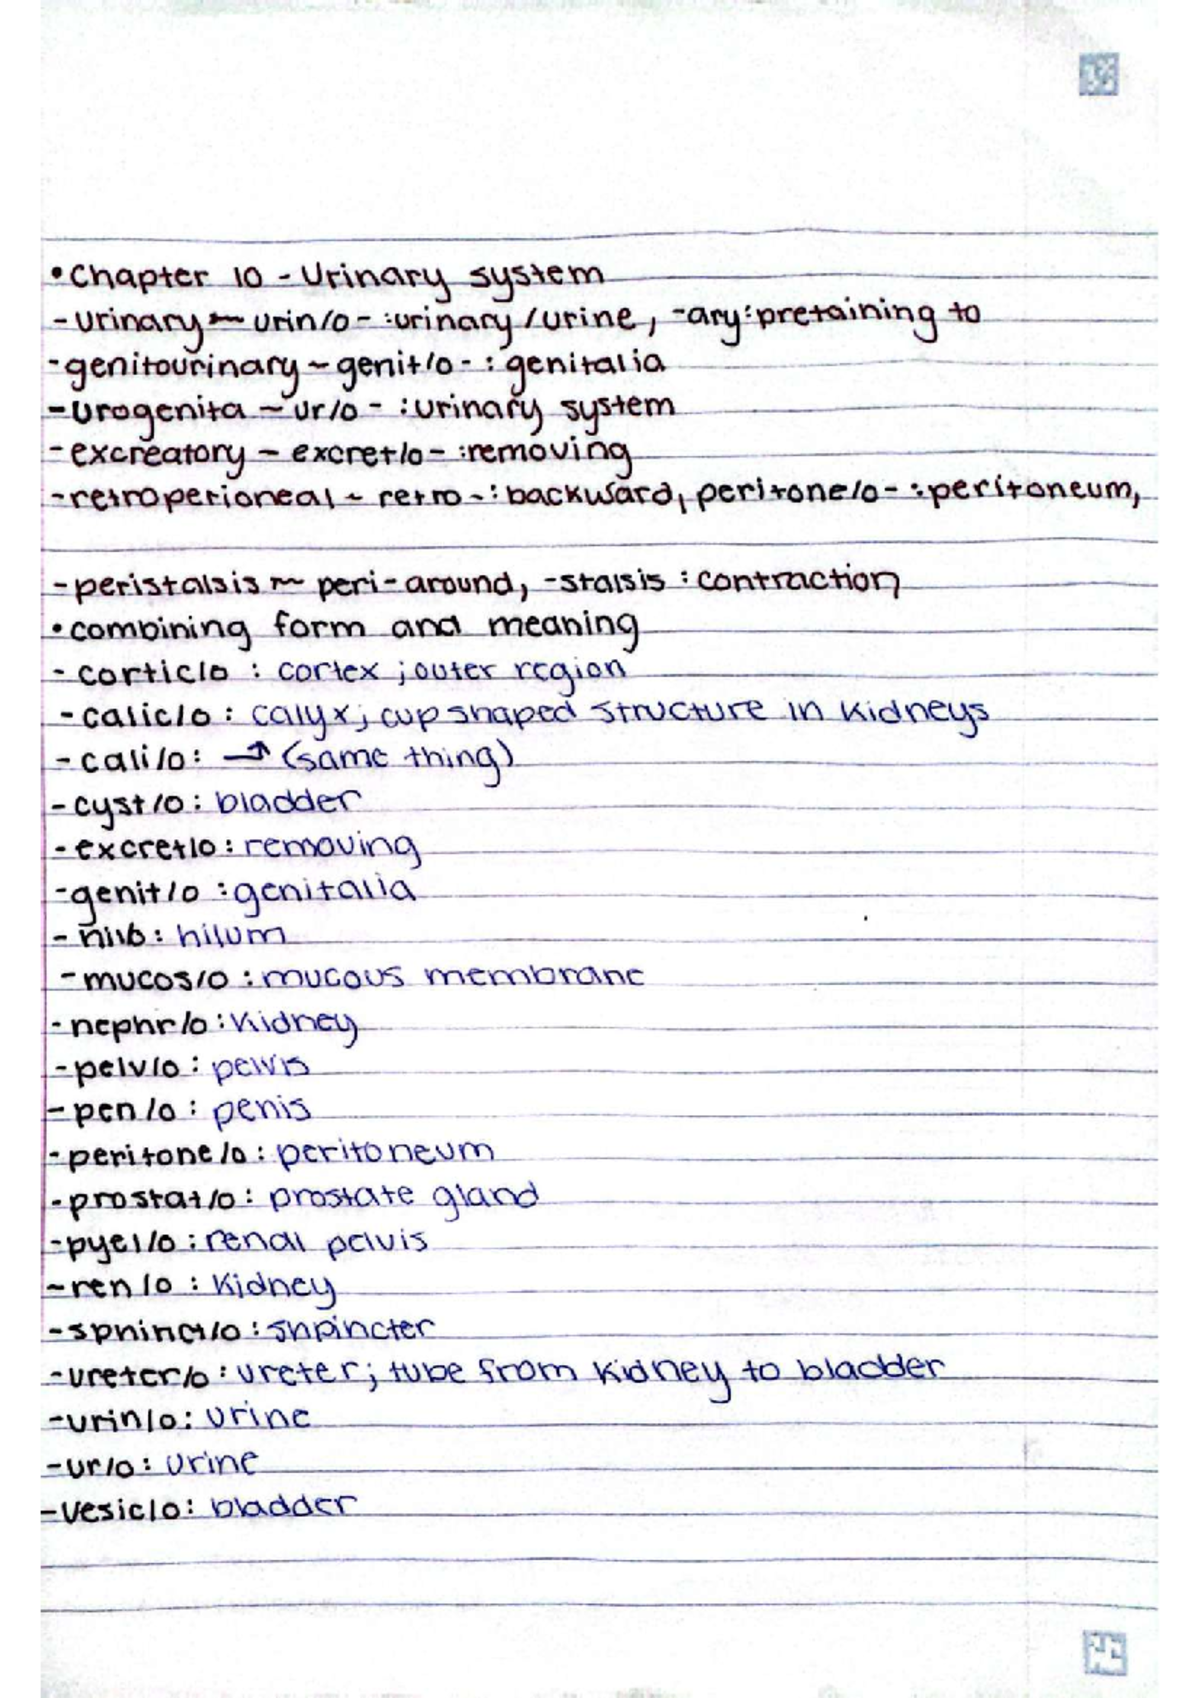 •Chapter 10 - Urinary system
- urinary ~ urin/o- :urinary/urine, -ary:pretaining to
-genitourinary ~ genit/o- : genitalia
-urogenita ~ ur/o- :urinary system
-excreatory ~ excret/o- :removing
-retroperioneal ~ retro-: backward, peritone/o- :peritoneum,
-peristalsis ~ peri-around, -stalsis : contraction
•combining form and meaning
- cortic/o : cortex ; outer region
-calic/o : calyx; cup shaped structure in kidneys
-cali/o: → (same thing)
-cyst/o: bladder
-excret/o: removing
-genit/o :genitalia
-hil/o: hilum
-mucos/o :mucous membrane
-nephr/o: kidney
-pelv/o: pelvis
-pen/o : penis
-peritone/o: peritoneum
-prostat/o: prostate gland
-pyel/o : renal pelvis
-ren/o : kidney
-sphinct/o: shpincter
-ureter/o : ureter; tube from kidney to bladder
-urin/o: urine
-ur/o: urine
-vesic/o: bladder